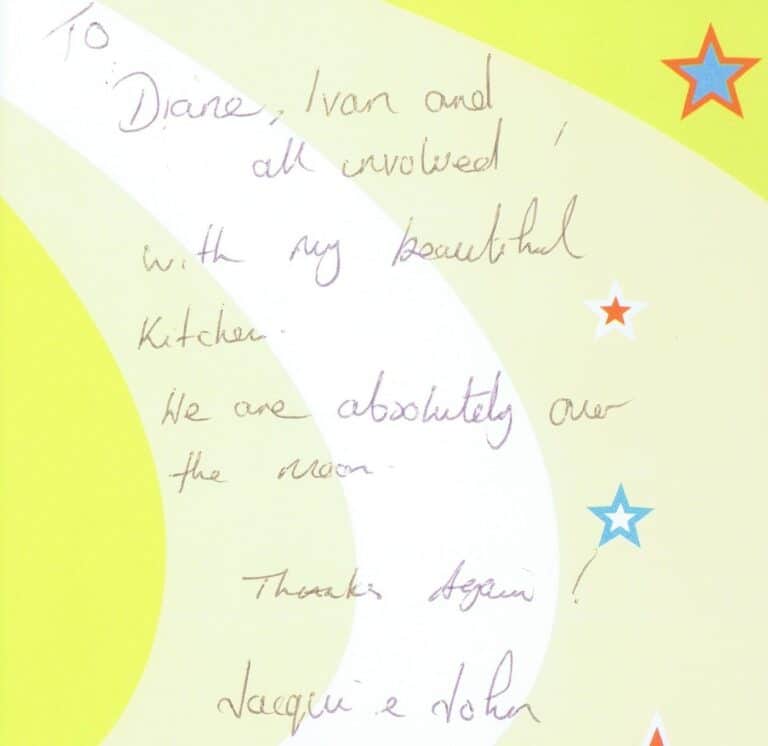 To
Diane, Ivan and
all involved !
with my beautiful
Kitchen.
We are absolutely over
the moon.
Thanks Again!
Jacqui e John